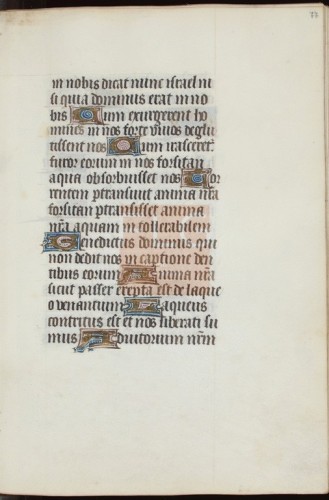 77
in nobis dicat nunc israel ni
si quia dominus erat in no
bis Cum exurgerent ho
mines in nos forte vivos deglu
tissent nos Cum irasceret
furor eorum in nos forsitan
aqua obsorbuisset nos Tor
rentem ptransivit anima nra
forsitan ptransisset anima
nra aquam in tollerabilem
Benedictus dominus qui
non dedit nos in captione den
tibus eorum Anima nra
sicut passer erepta est de laque
o venantium Laqueus
contritus est et nos liberati su
mus Adiutorium nrm